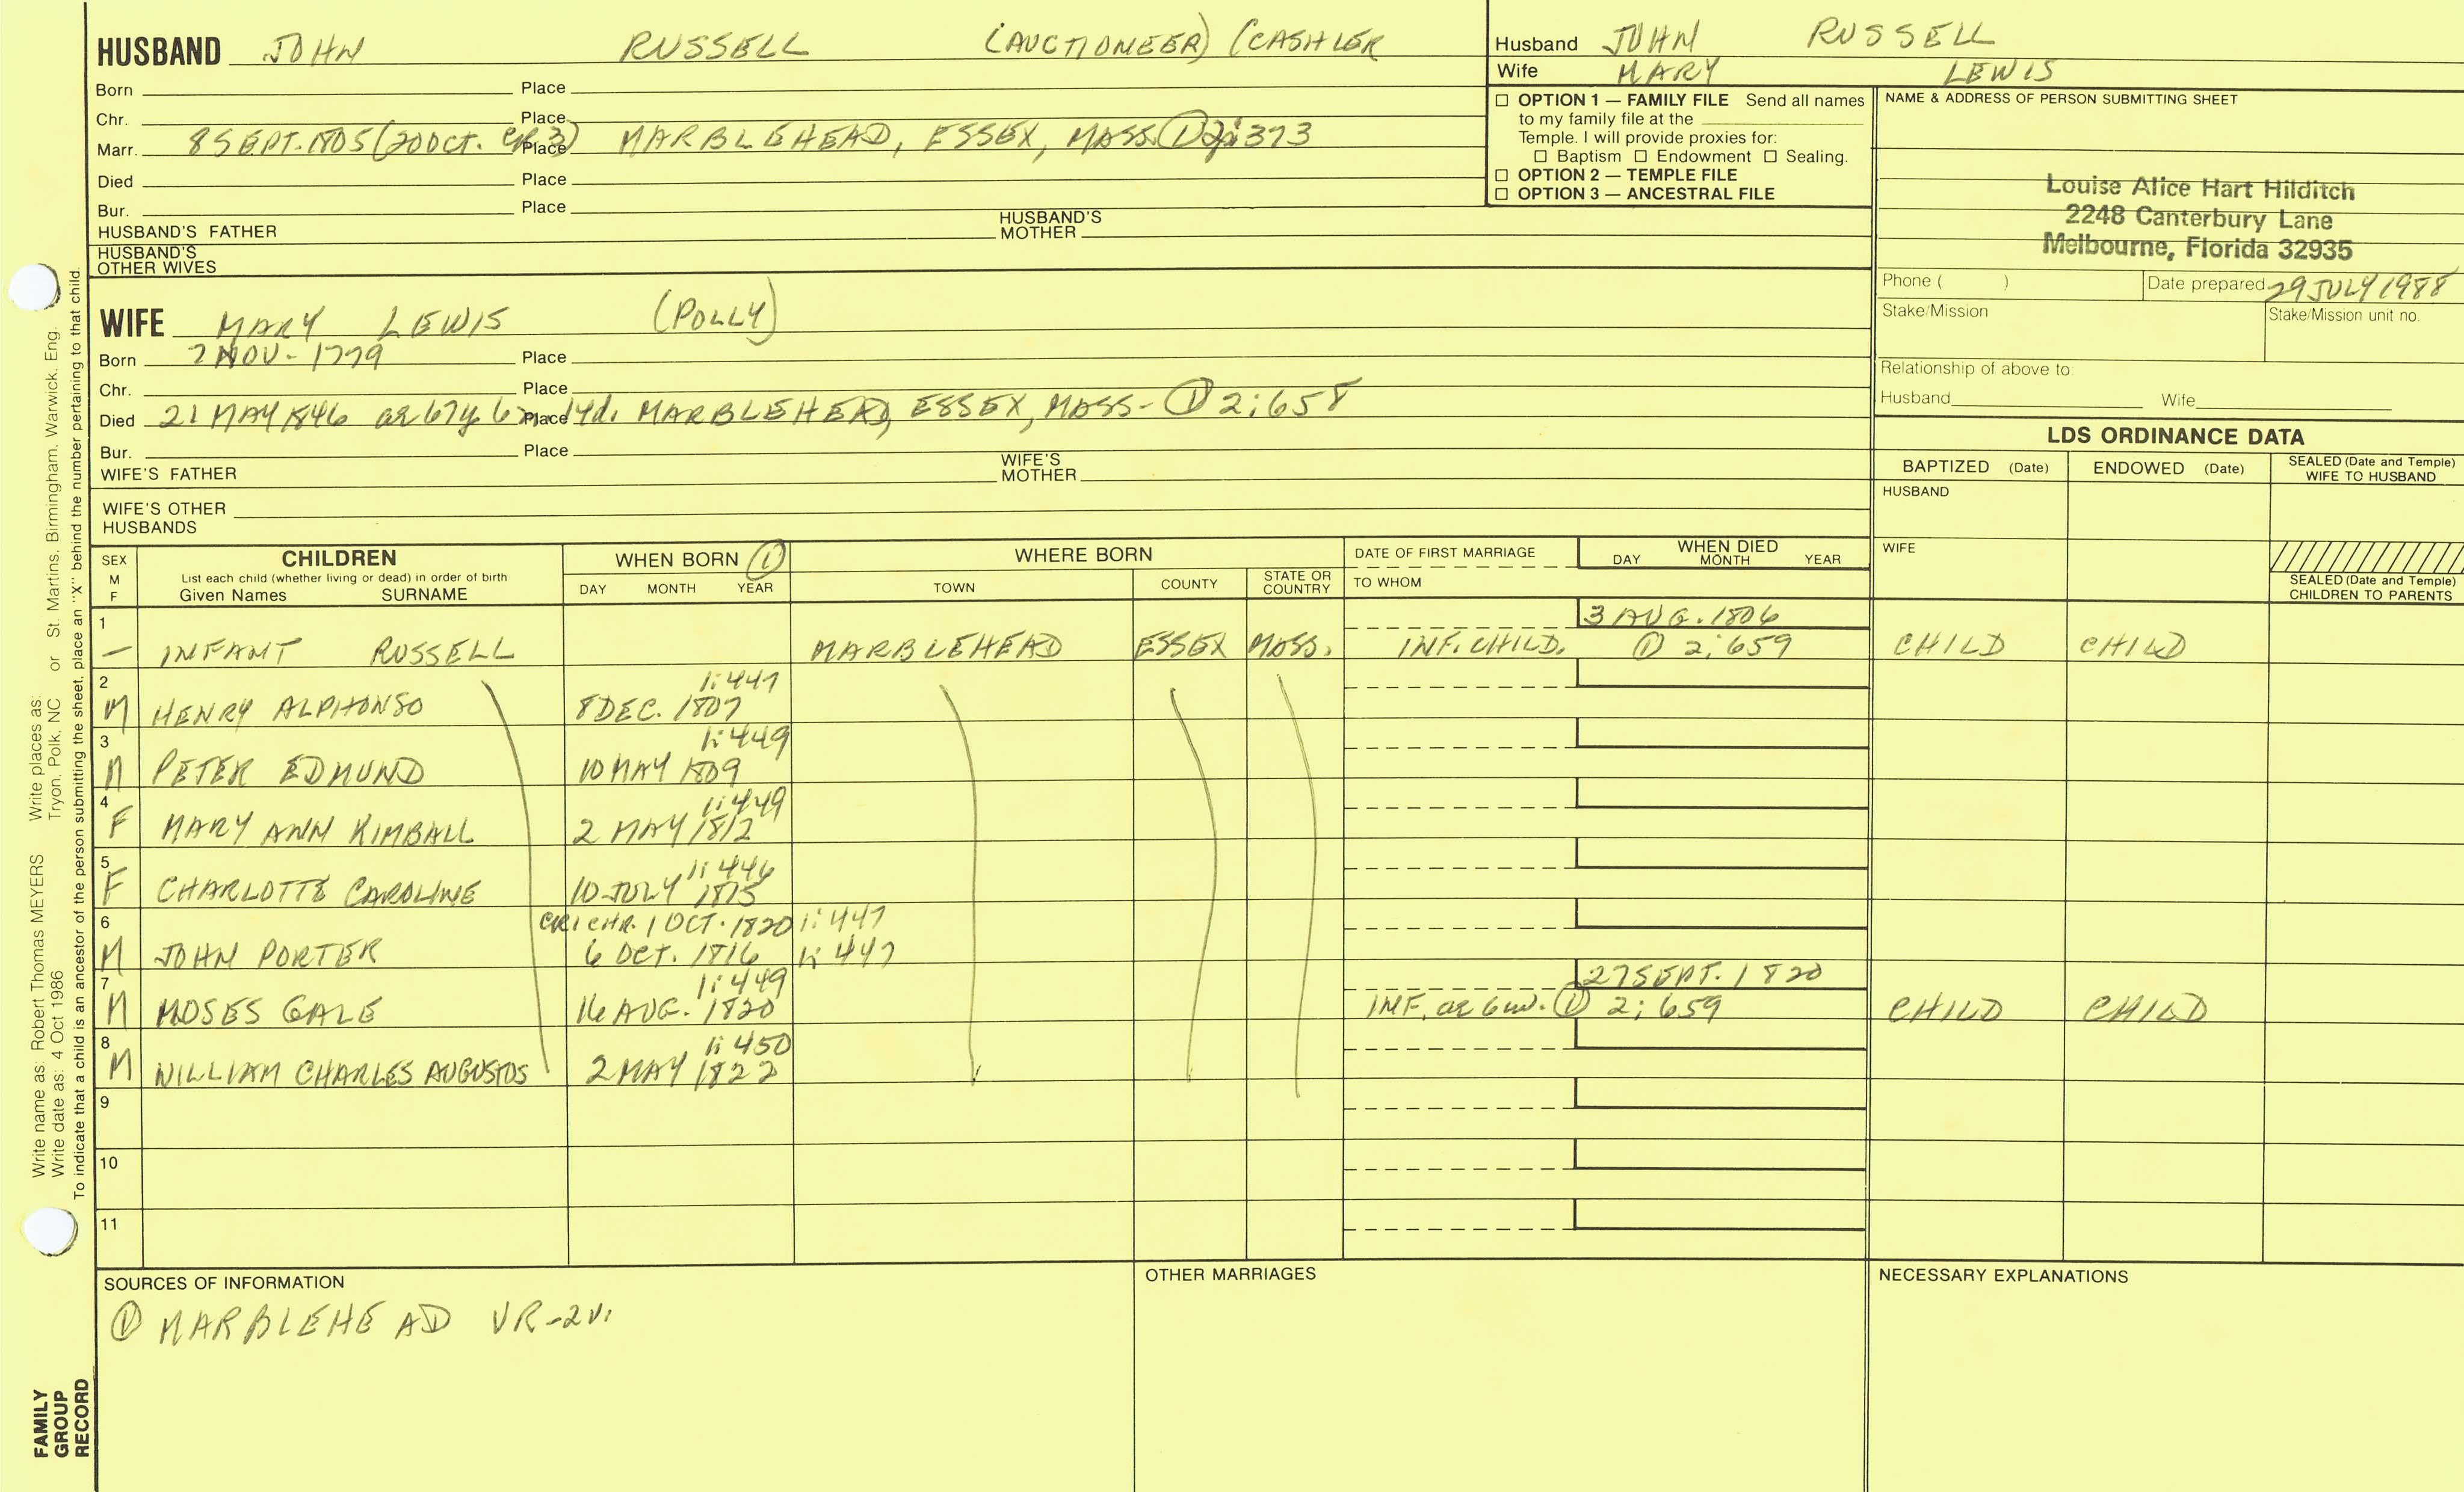 HUSBAND JOHN RUSSELL (AUCTIONEER) (CASHIER
Born Place
Chr. Place
Marr. 8 SEPT. 1805 (20 OCT. CR. 3) Place MARBLEHEAD, ESSEX, MASS. ① 2; 373
Died Place
Bur. Place
HUSBAND'S FATHER HUSBAND'S MOTHER
HUSBAND'S OTHER WIVES
Husband JOHN RUSSELL
Wife MARY LEWIS
☐ OPTION 1 — FAMILY FILE Send all names
to my family file at the
Temple. I will provide proxies for:
☐ Baptism ☐ Endowment ☐ Sealing.
☐ OPTION 2 — TEMPLE FILE
☐ OPTION 3 — ANCESTRAL FILE
NAME & ADDRESS OF PERSON SUBMITTING SHEET
Louise Alice Hart Hilditch
2248 Canterbury Lane
Melbourne, Florida 32935
Phone ( ) Date prepared 29 JULY 1988
Stake/Mission Stake/Mission unit no.
Relationship of above to:
Husband Wife
WIFE MARY LEWIS (POLLY)
Born 7 NOV- 1779 Place
Chr. Place
Died 21 MAY 1846 ae 67y 6m Place 14d. MARBLEHEAD, ESSEX, MASS- ① 2; 658
Bur. Place
WIFE'S FATHER WIFE'S MOTHER
WIFE'S OTHER HUSBANDS
LDS ORDINANCE DATA
BAPTIZED (Date) ENDOWED (Date) SEALED (Date and Temple) WIFE TO HUSBAND
HUSBAND
WIFE
SEALED (Date and Temple) CHILDREN TO PARENTS
SEX M F CHILDREN WHEN BORN ① WHERE BORN DATE OF FIRST MARRIAGE WHEN DIED
List each child (whether living or dead) in order of birth
Given Names SURNAME DAY MONTH YEAR TOWN COUNTY STATE OR COUNTRY TO WHOM DAY MONTH YEAR
1 3 AUG. 1806
— INFANT RUSSELL MARBLEHEAD ESSEX MASS. INF. CHILD. ① 2; 659 CHILD CHILD
2 1; 447
M HENRY ALPHONSO 8 DEC. 1807
3 1; 449
M PETER EDMUND 10 MAY 1809
4 1; 449
F MARY ANN KIMBALL 2 MAY 1812
5 1; 446
F CHARLOTTE CAROLINE 10 JULY 1815
6 CR1 CHR. 1 OCT. 1820 1; 447
M JOHN PORTER 6 OCT. 1816 1; 447
7 1; 449 27 SEPT. 1820
M MOSES GALE 16 AUG. 1820 INF. ae 6w. ① 2; 659 CHILD CHILD
8 1; 450
M WILLIAM CHARLES AUGUSTUS 2 MAY 1822
9
10
11
SOURCES OF INFORMATION
① MARBLEHEAD VR-2V.
OTHER MARRIAGES
NECESSARY EXPLANATIONS
Write name as: Robert Thomas MEYERS Write places as: Tryon, Polk, NC or St. Martins, Birmingham, Warwick, Eng.
Write date as: 4 Oct 1986
To indicate that a child is an ancestor of the person submitting the sheet, place an "X" behind the number pertaining to that child.
FAMILY
GROUP
RECORD